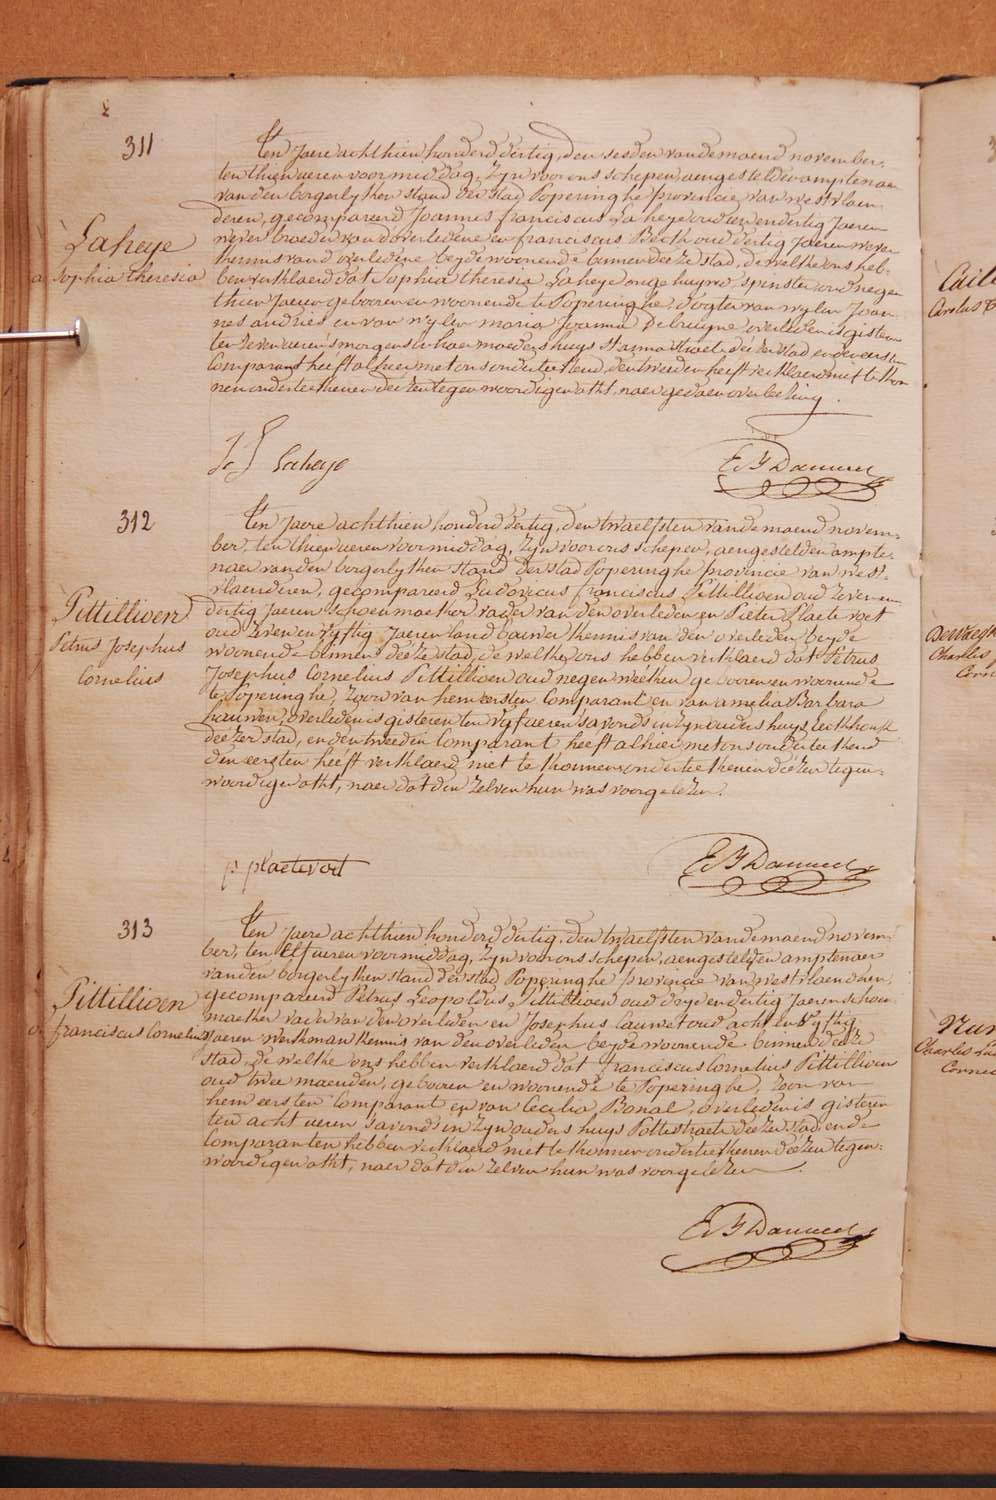 311
Ten jaere achthien honderd dertig, den sesden van de maend november,
ten thien ueren voormiddag, Zyn voor ons schepen, aengestelden amptenaer
van den borgerlyken stand der stad Poperinghe Provincie van westvlaen-
deren, gecompareerd Joannes franciscus Laheye oud tien en dertig Jaeren
wever broeder van d'overledene en franciscus Beck oud dertig Jaeren wever
kennis van d'overledene beyde woonende binnen deéze stad, de welke ons heb-
ben verklaerd dat Sophia theresia Laheye ongehuywd, spinster oud negen
thien Jaeren gebooren en woonende te Poperinghe, dogter van wylen Joan-
nes andries en van wylen maria Joanna Debruyne, overleden is gisteren
ten zeven ueren s'morgens in haer moeders huys deézer stad en den eersten
Comparant heeft alhier met ons onderteekend, den tweeden heeft verklaerd niet te kon-
nen onderteekenen deézen tegenwoordigen akt, naer gedaen overleézing.
Laheye
Sophia theresia
J F Laheye
312
Ten Jaere achthien honderd dertig, den twaelfsten van de maend novem-
ber, ten thien ueren voormiddag, Zyn voor ons schepen, aengestelden ampte-
naer van den borgerlyken stand der stad Poperinghe Provincie van west-
vlaenderen, gecompareerd Ludovicus franciscus Pittillioen oud zeven en
dertig Jaeren schoenmaeker vader van den overleden en Pieter Plaetevoet
oud zeven en vyftig Jaeren landbauwer kennis van den overleden beyde
woonende binnen deéze stad, de welke ons hebben verklaerd dat Petrus
Josephus Cornelius Pittillioen oud negen weeken gebooren en woonende
te Poperinghe, zoon van hem eersten Comparant en van amelia Barbara
hauwen, overleden is gisteren ten vyf ueren s'avonds in zyn ouders huys
deézer stad, en den tweeden Comparant heeft alhier met ons onderteekend
den eersten heéft verklaerd niet te konnen onderteekenen deézen tegen-
woordigen akt, naer dat den zelven hun was voorgelezen.
Pittillioen
Petrus Josephus
Cornelius
p plaetevoet
313
Ten jaere achthien honderd dertig, den twaelfsten van de maend novem-
ber, ten Elf ueren voormiddag, Zyn voor ons schepen, aengestelden amptenaer
van den borgerlyken stand der stad Poperinghe provincie van westvlaenderen,
gecompareerd Petrus Leopoldus Pittillioen oud dry en dertig Jaeren schoen-
maeker vader van den overleden en Josephus Cauwet oud acht en vyftig
Jaeren werkman kennis van den overleden beyde woonende binnen deéze
stad, de welke ons hebben verklaerd dat franciscus Cornelius Pittillioen
oud twee maenden, gebooren en woonende te Poperinghe, zoon van
hem eersten Comparant en van Cecilia Bonal, overleden is gisteren
ten acht ueren s'avonds in zyn ouders huys Pottestraete deézer stad en de
Comparanten hebben verklaerd niet te konnen onderteekenen deézen tegen-
woordigen akt, naer dat den zelven hun was voorgelezen.
Pittillioen
franciscus Cornelius